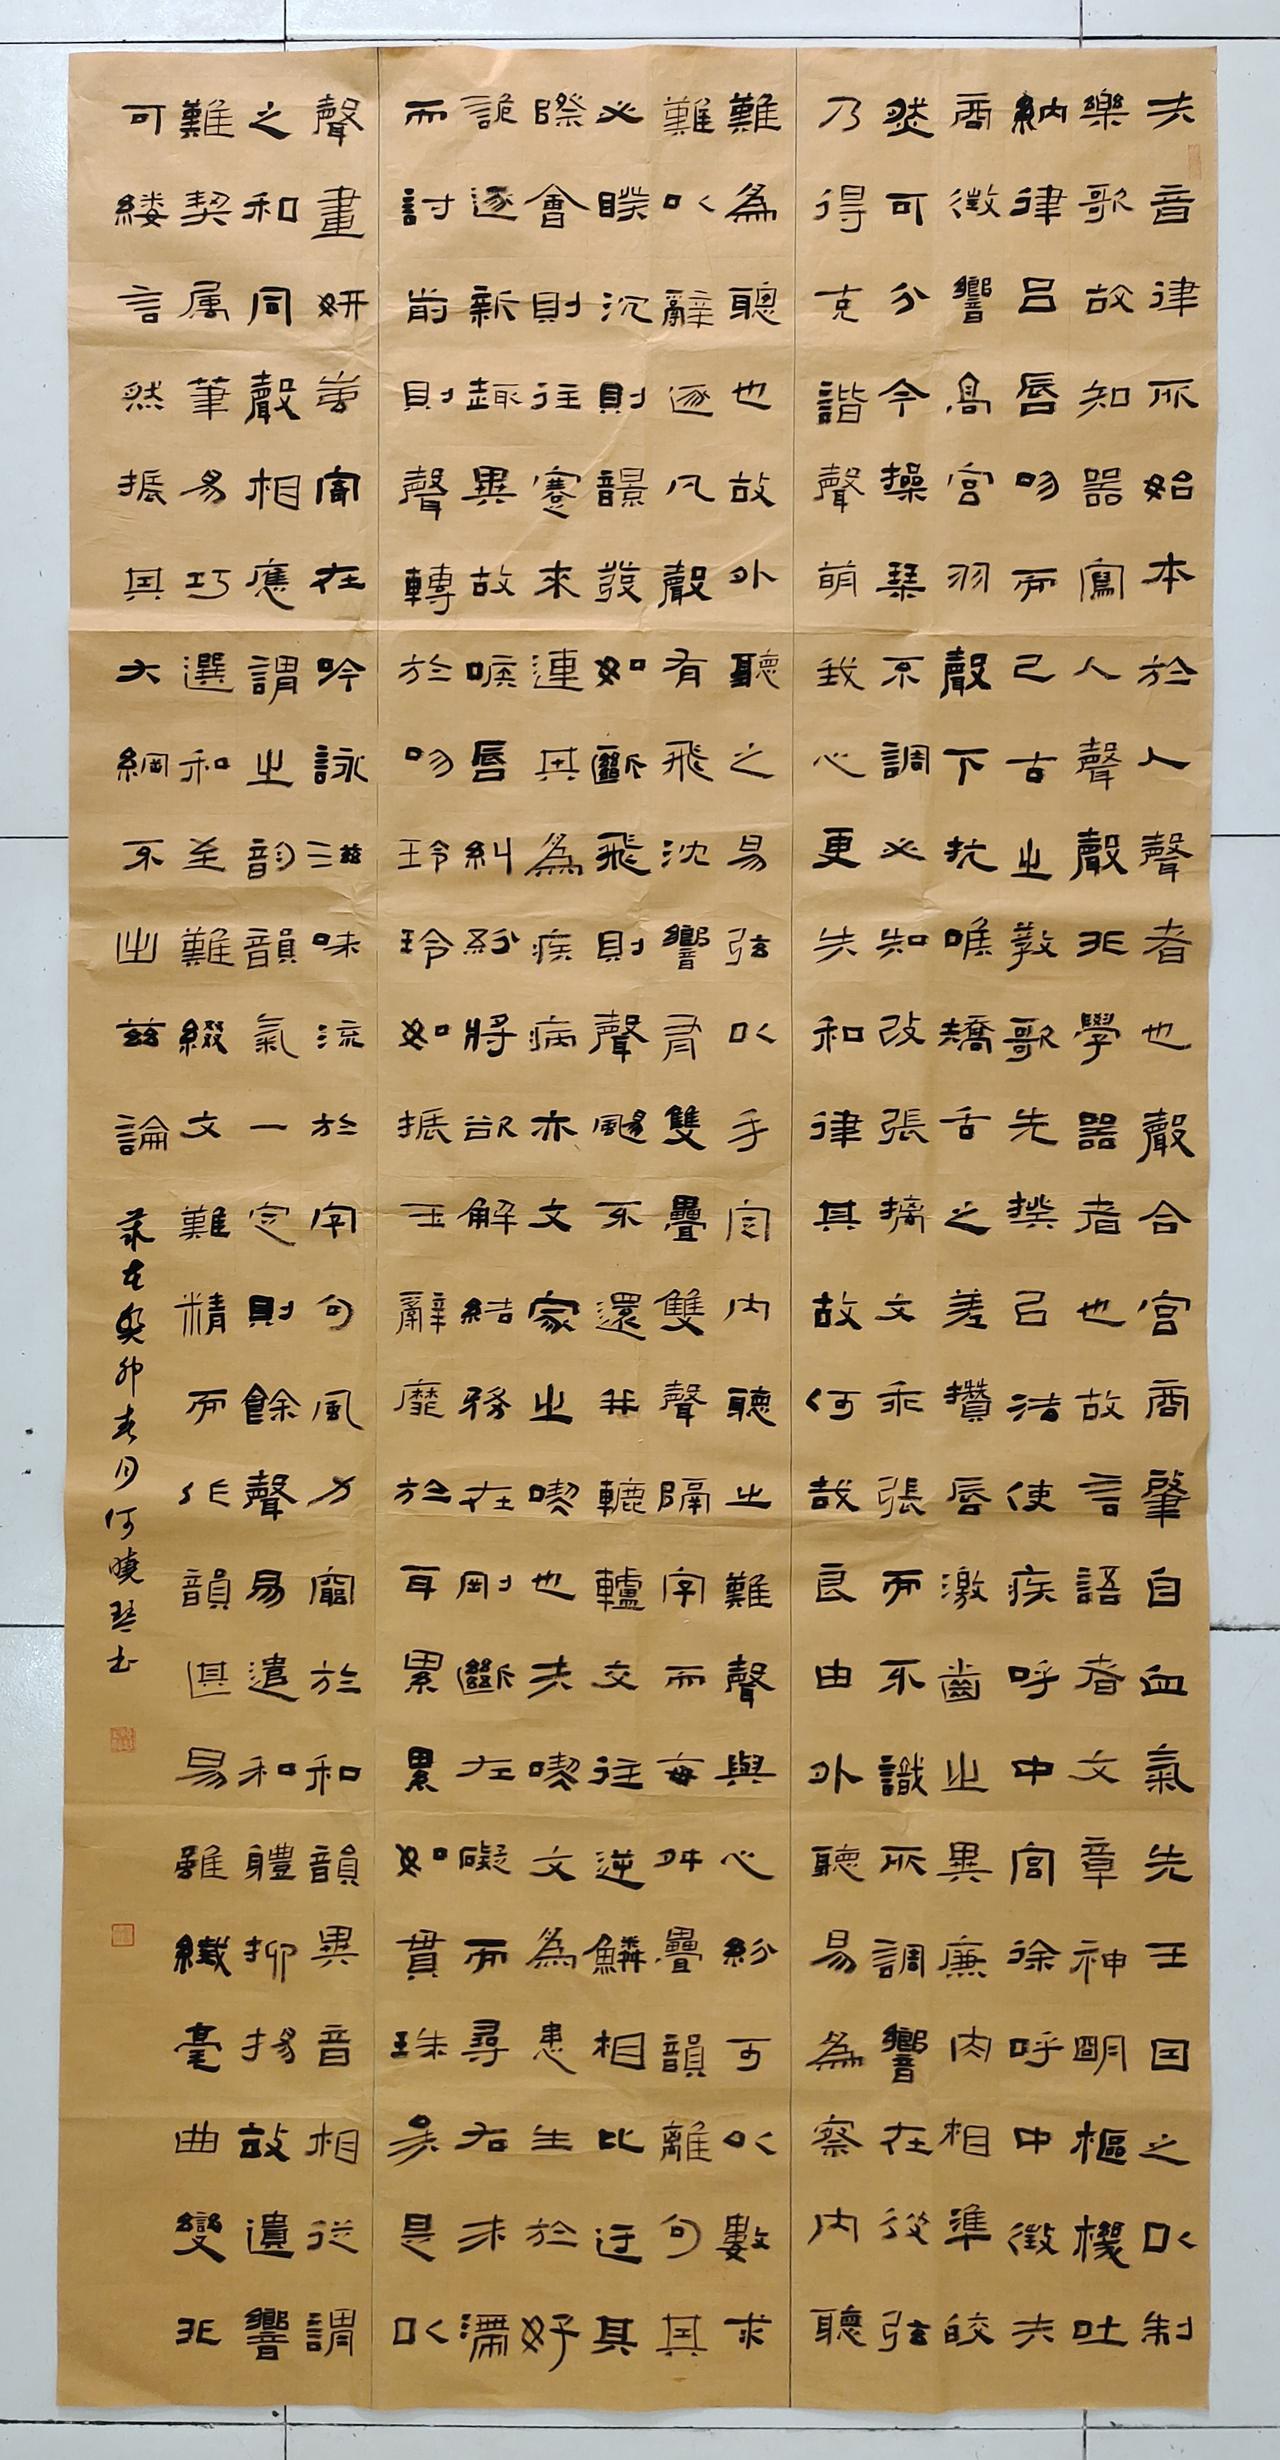 夫音律所始本於人聲者也聲合宮商肇自血氣先王因之以制
樂歌故知器寫人聲聲非學器者也故言語者文章神明樞機吐
納律呂唇吻而已古之教歌先揆以法使疾呼中宮徐呼中徵夫
商徵響高宮羽聲下抗喉矯舌之差攢唇激齒之異廉肉相準皎
然可分今操琴不調必知改張摛文乖張而不識所調響在彼弦
乃得克諧聲萌我心更失和律其故何哉良由外聽易為察內聽
難為聰也故外聽之易弦以手定內聽之難聲與心紛可以數求
難以辭逐凡聲有飛沈響有雙疊雙聲隔字而每舛疊韻離句其
必睽沉則韻發如斷飛則聲颺不還並轆轤交往逆鱗相比迕其
際會則往蹇來連其為疾病亦文家之喫也夫喫文為患生於好
詭逐新趣異故喉唇糾紛將欲解結務在剛斷左礙而尋右末滯
而討前則聲轉於吻玲玲如振玉辭靡於耳累累如貫珠矣是以
聲畫妍蚩寄在吟詠滋味流於字句風力窮於和韻異音相從謂
之和同聲相應謂之韵韻氣一定則餘聲易遣和體抑揚故遺響
難契属筆易巧選和至難綴文難精而作韻甚易雖纖毫曲變非
可縷言然振其大綱不出茲論 癸卯春月何曉琴书